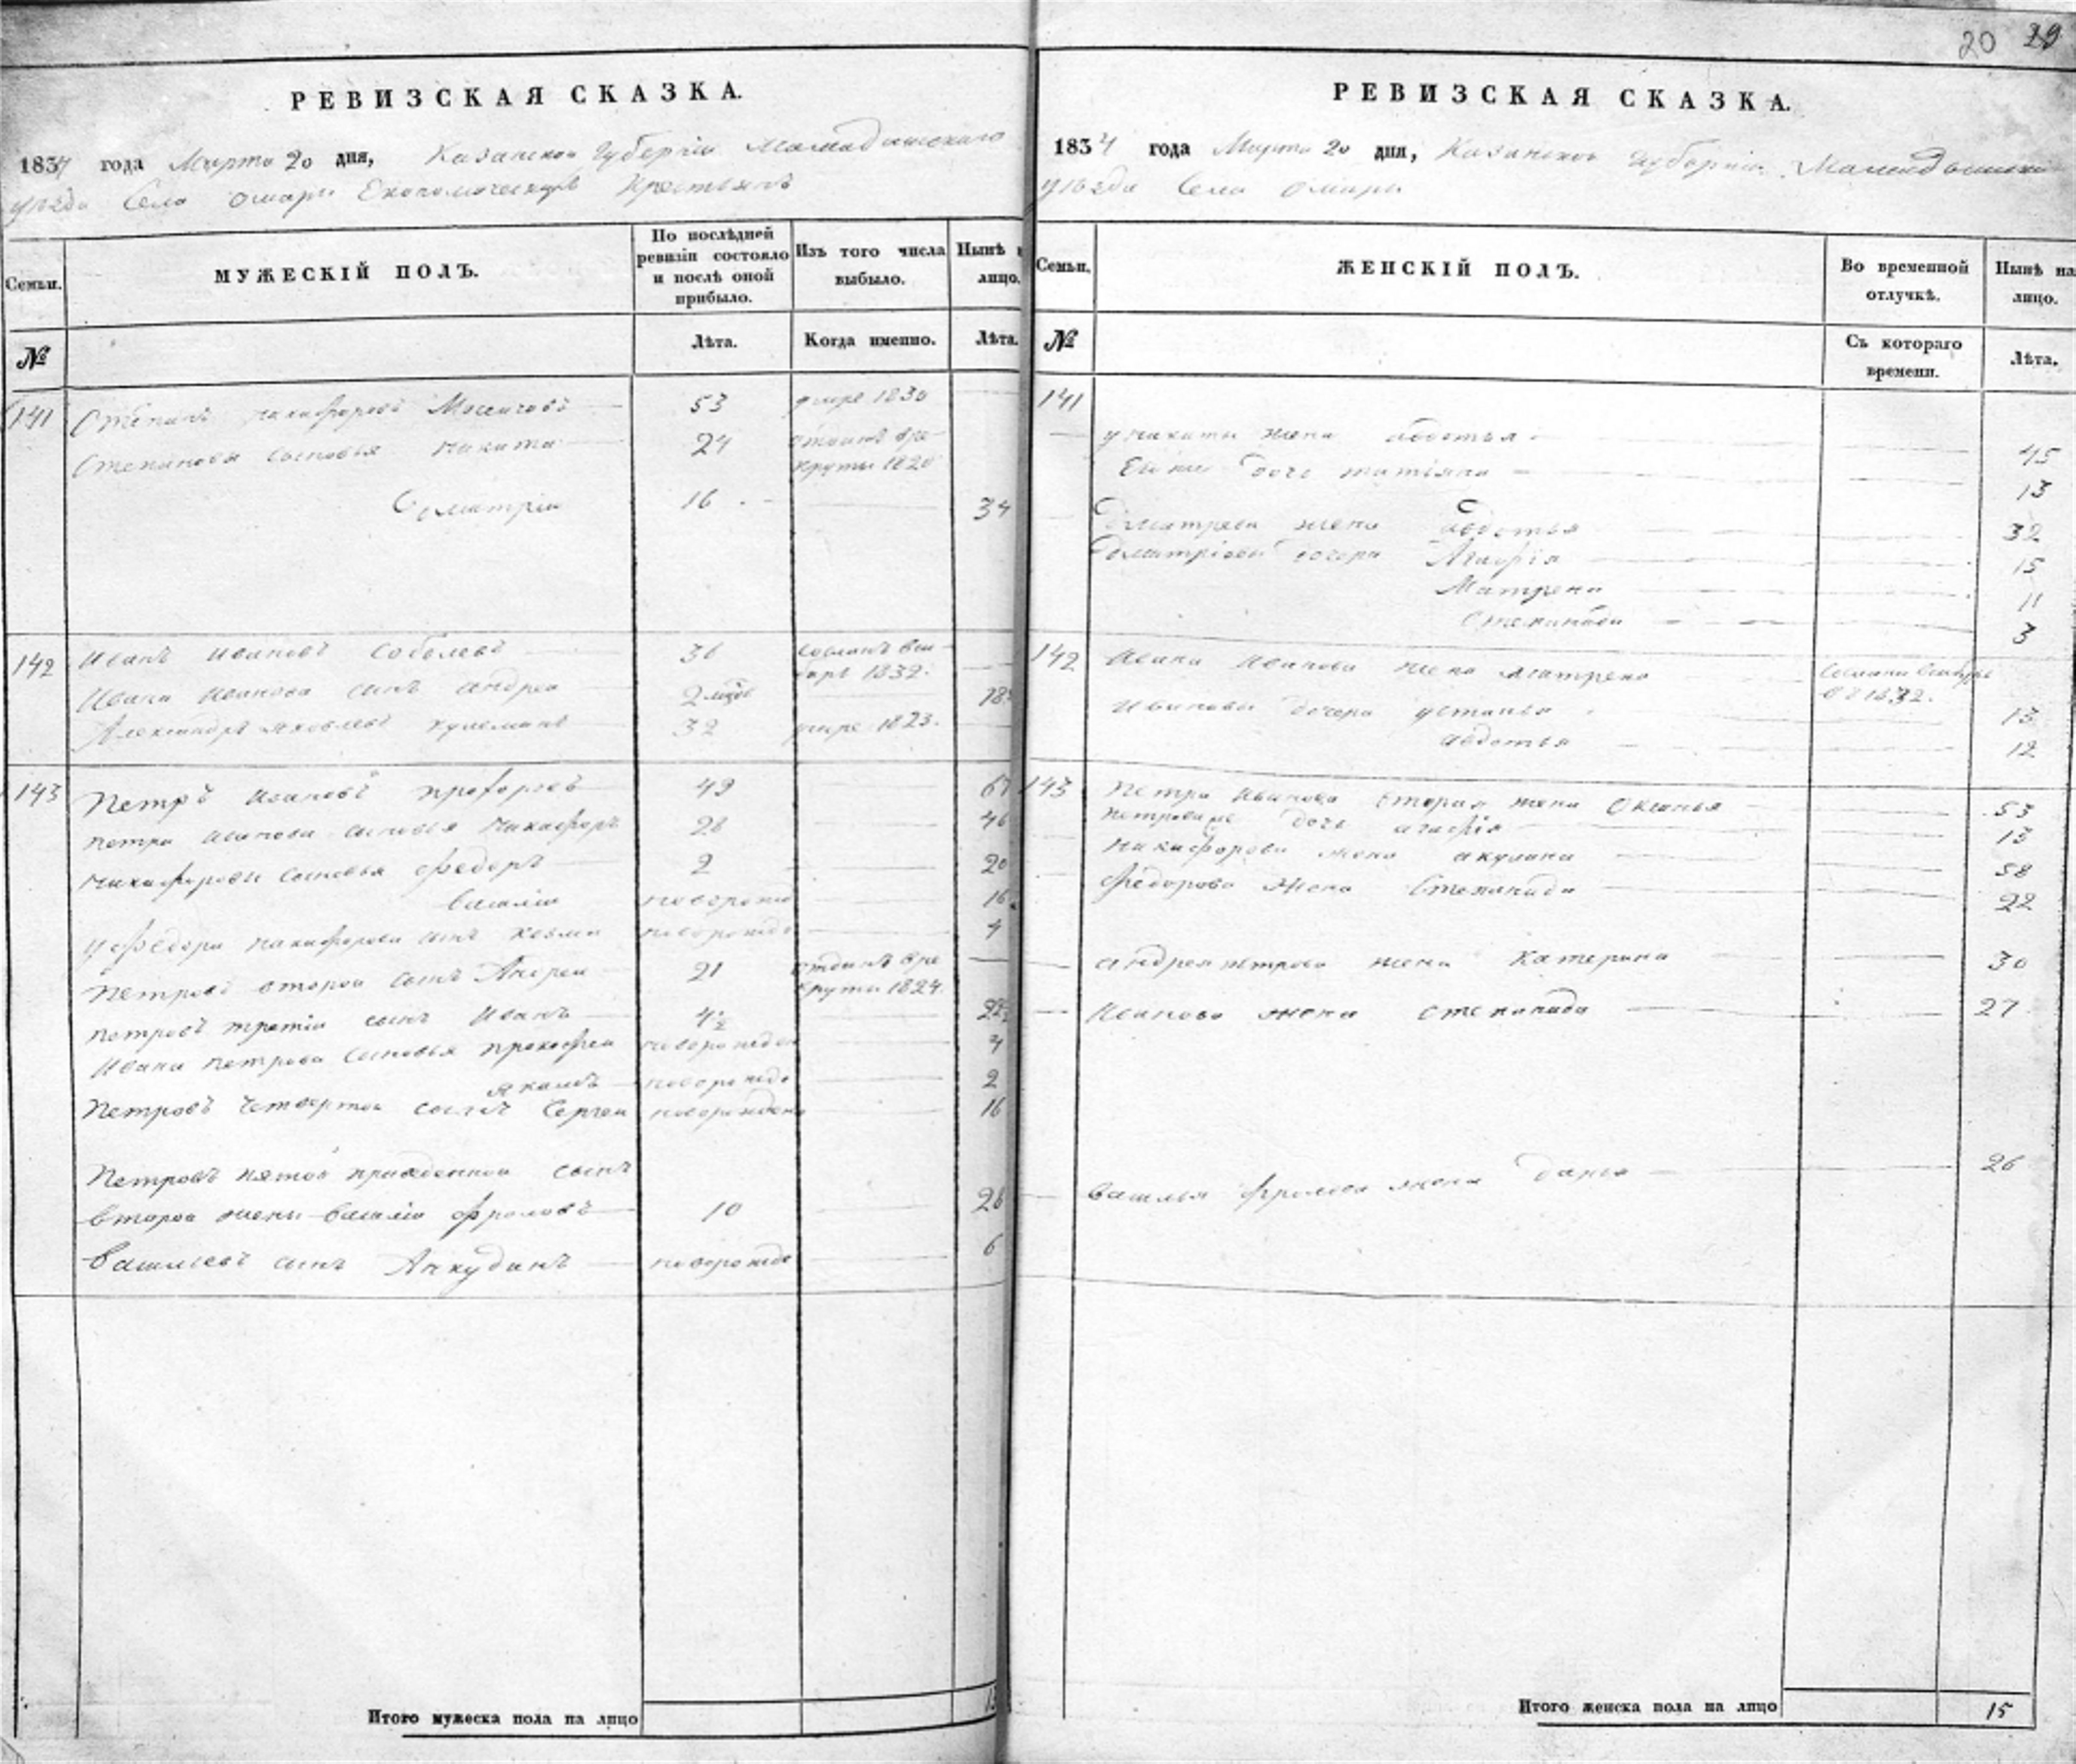 20 19
РЕВИЗСКАЯ СКАЗКА.
1834 года Марта 20 дня, Казанской Губернии Мамадышскаго
уезда Села Омары Економическихъ Крестьянъ
Семьи. МУЖЕСКІЙ ПОЛЪ. По послѣдней ревизіи состояло и послѣ оной прибыло. Изъ того числа выбыло. Нынѣ лицо.
№ Лѣта. Когда именно. Лѣта.
141 Степанъ Никифоровъ 53 умре 1830
Степановы сыновья Никита 24 отданъ в рекруты 1820
Дмитрии 16 34
142 Иванъ Ивановъ Соболевъ 36 сосланъ 1832.
Ивана Иванова сынъ Андреи 2 18
Александръ Яковлевъ 32 умре 1823.
143 Петръ Ивановъ 49 67
Петра Иванова сыновья Никифоръ 28 46
Никифоровы сыновья Федоръ 2 20
Василии новорожд 16
у Федора Никифорова сынъ Козма новорожде 4
Петровъ второй сынъ Андреи 21 отданъ в рекруты 1824.
Петровъ третіи сынъ Иванъ 4½ 22½
Ивана Петрова сыновья Прокофеи новорожден 4
Якимъ новорожде 2
Петровъ четвертои сынъ Сергеи новорожден 16
Петровъ пятои приведеннои сынъ
второи жены Василии Фроловъ 10 28
Васильевъ сынъ Анкудинъ новорожде 6
Итого мужеска пола на лицо
РЕВИЗСКАЯ СКАЗКА.
1834 года Марта 20 дня, Казанской Губернии Мамадышскаго
уезда Села Омары
Семьи. ЖЕНСКІЙ ПОЛЪ. Во временной отлучкѣ. Нынѣ на лицо.
№ Съ котораго времени. Лѣта.
141
у Никиты жена Авдотья 45
Ея же дочь Татьяна 13
Дмитрева жена Авдотья 32
Дмитріевы дочери Агафія 15
Матрена 11
Степанида 3
142 Ивана Иванова жена Матрена 1832.
Ивановы дочери Устинья 13
Авдотья 12
143 Петра Иванова вторая жена Оксинья 53
Петрова дочь Агафія 13
Никифорова жена Акулина 58
Федорова жена Степанида 22
Андрея Петрова жена Катерина 30
Иванова жена Степанида 27
Василья Фролова жена Дарья 26
Итого женска пола на лицо 15